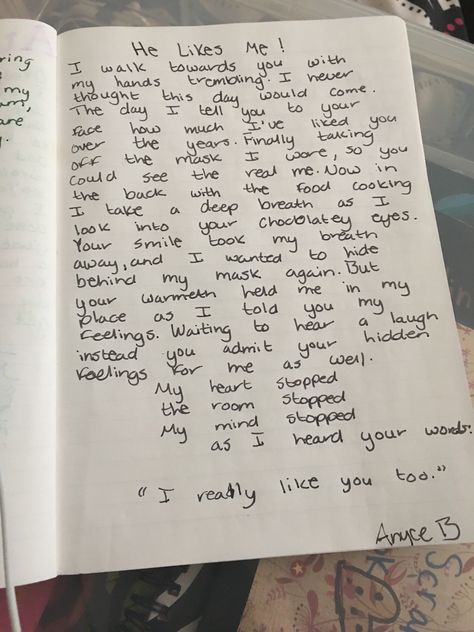 ring
my
am,
are
He Likes Me!
I walk towards you with
my hands trembling. I never
thought this day would come.
The day I tell you to your
face how much I've liked you
over the years. Finally taking
off the mask I wore, so you
could see the real me. Now in
the back with the food cooking
I take a deep breath as I
look into your chocolatey eyes.
Your smile took my breath
away, and I wanted to hide
behind my mask again. But
your warmeth held me in my
place as I told you my
feelings. Waiting to hear a laugh
instead you admit your hidden
feelings for me as well.
My heart stopped
the room stopped
My mind stopped
as I heard your words:
"I really like you too."
Anyce B